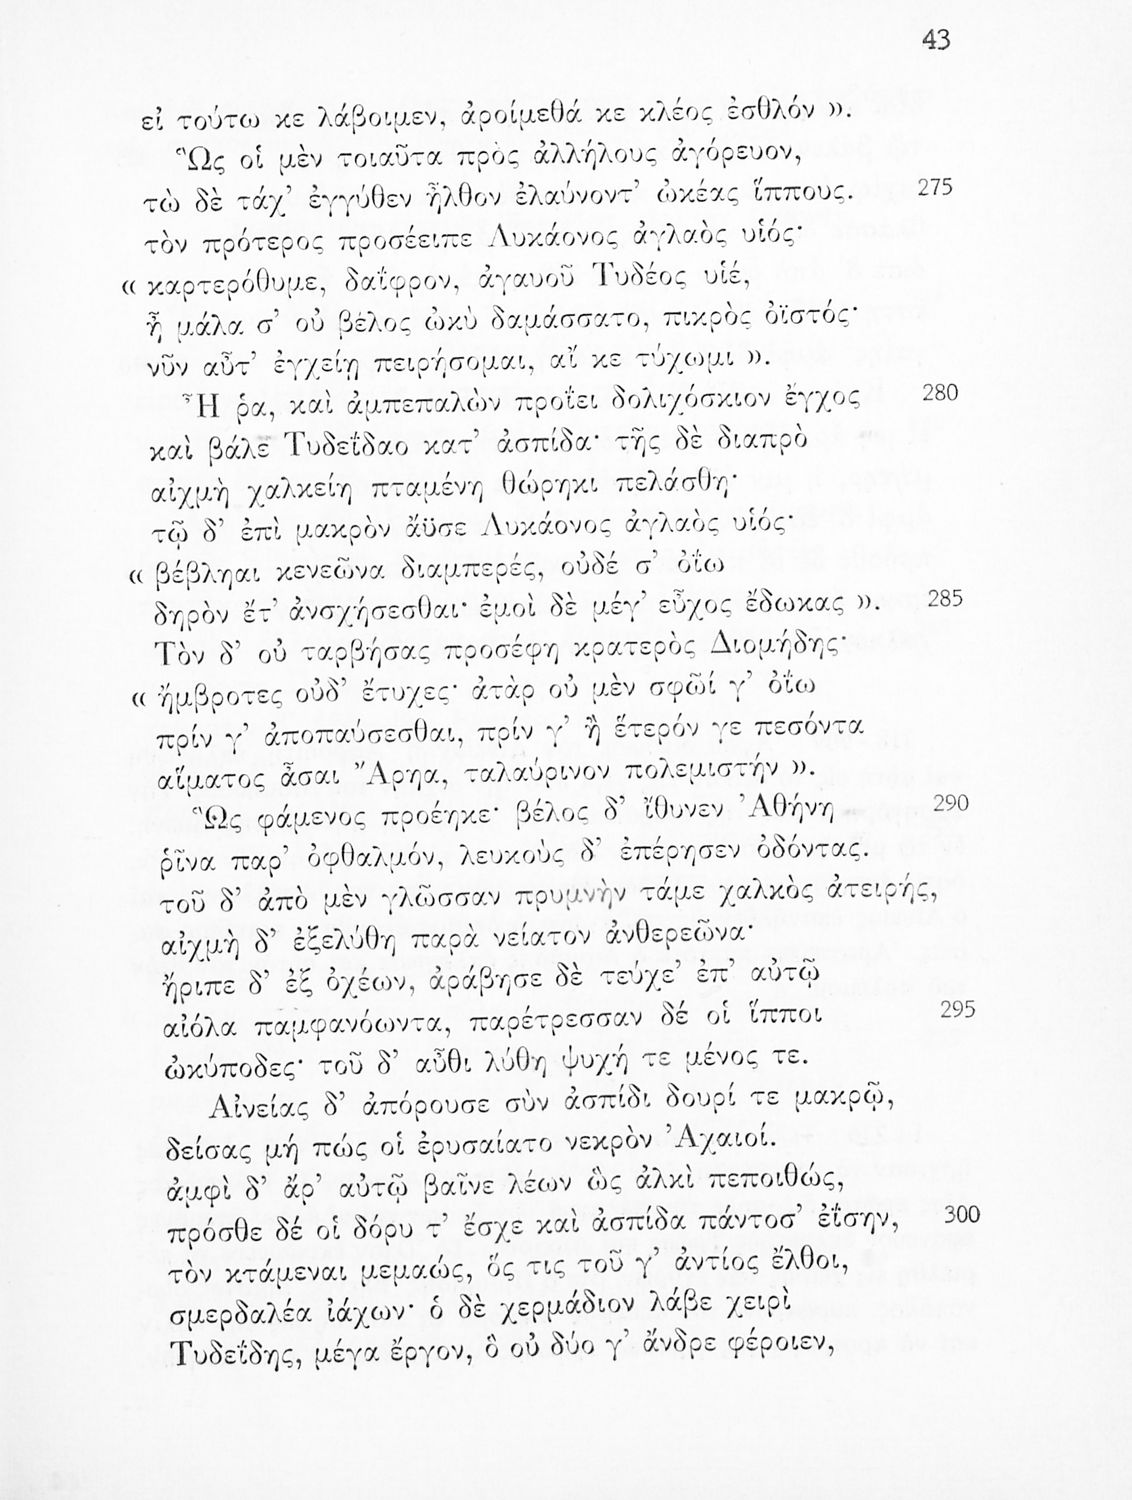 43
εἰ τούτω κε λάβοιμεν, ἀροίμεθά κε κλέος ἐσθλόν ».
Ὣς οἱ μὲν τοιαῦτα πρὸς ἀλλήλους ἀγόρευον,
τὼ δὲ τάχ’ ἐγγύθεν ἦλθον ἐλαύνοντ’ ὠκέας ἵππους. 275
τὸν πρότερος προσέειπε Λυκάονος ἀγλαὸς υἱός·
« καρτερόθυμε, δαΐφρον, ἀγαυοῦ Τυδέος υἱέ,
ἦ μάλα σ’ οὐ βέλος ὠκὺ δαμάσσατο, πικρὸς ὀϊστός·
νῦν αὖτ’ ἐγχείῃ πειρήσομαι, αἴ κε τύχωμι ».
Ἦ ῥα, καὶ ἀμπεπαλὼν προΐει δολιχόσκιον ἔγχος 280
καὶ βάλε Τυδεΐδαο κατ’ ἀσπίδα· τῆς δὲ διαπρὸ
αἰχμὴ χαλκείη πταμένη θώρηκι πελάσθη·
τῷ δ’ ἐπὶ μακρὸν ἄϋσε Λυκάονος ἀγλαὸς υἱός·
« βέβληαι κενεῶνα διαμπερές, οὐδέ σ’ ὀΐω
δηρὸν ἔτ’ ἀνσχήσεσθαι· ἐμοὶ δὲ μέγ’ εὖχος ἔδωκας ». 285
Τὸν δ’ οὐ ταρβήσας προσέφη κρατερὸς Διομήδης·
« ἤμβροτες οὐδ’ ἔτυχες· ἀτὰρ οὐ μὲν σφῶΐ γ’ ὀΐω
πρίν γ’ ἀποπαύσεσθαι, πρίν γ’ ἢ ἕτερόν γε πεσόντα
αἵματος ἆσαι Ἄρηα, ταλαύρινον πολεμιστήν ».
Ὣς φάμενος προέηκε· βέλος δ’ ἴθυνεν Ἀθήνη 290
ῥῖνα παρ’ ὀφθαλμόν, λευκοὺς δ’ ἐπέρησεν ὀδόντας.
τοῦ δ’ ἀπὸ μὲν γλῶσσαν πρυμνὴν τάμε χαλκὸς ἀτειρής,
αἰχμὴ δ’ ἐξελύθη παρὰ νείατον ἀνθερεῶνα·
ἤριπε δ’ ἐξ ὀχέων, ἀράβησε δὲ τεύχε’ ἐπ’ αὐτῷ
αἰόλα παμφανόωντα, παρέτρεσσαν δέ οἱ ἵπποι 295
ὠκύποδες· τοῦ δ’ αὖθι λύθη ψυχή τε μένος τε.
Αἰνείας δ’ ἀπόρουσε σὺν ἀσπίδι δουρί τε μακρῷ,
δείσας μή πώς οἱ ἐρυσαίατο νεκρὸν Ἀχαιοί.
ἀμφὶ δ’ ἄρ’ αὐτῷ βαῖνε λέων ὣς ἀλκὶ πεποιθώς,
πρόσθε δέ οἱ δόρυ τ’ ἔσχε καὶ ἀσπίδα πάντοσ’ ἐΐσην, 300
τὸν κτάμεναι μεμαώς, ὅς τις τοῦ γ’ ἀντίος ἔλθοι,
σμερδαλέα ἰάχων· ὁ δὲ χερμάδιον λάβε χειρὶ
Τυδεΐδης, μέγα ἔργον, ὃ οὐ δύο γ’ ἄνδρε φέροιεν,